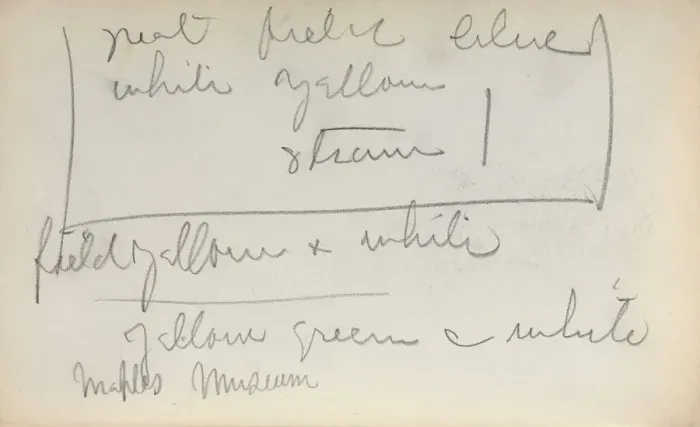 neat fields blue
white yellow
stream
field yellow & white
yellow green & white
Maples Museum